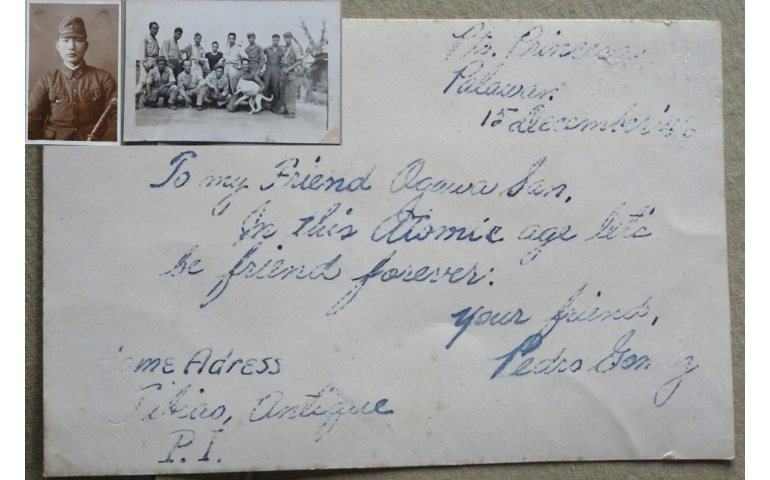 Pto. Princesa
Palawan
15 december '46
To my Friend Ogawa San,
In this Atomic age let's
be friend forever:
your friend,
Pedro
ome Adress
Tibiao, Antique
P.I.